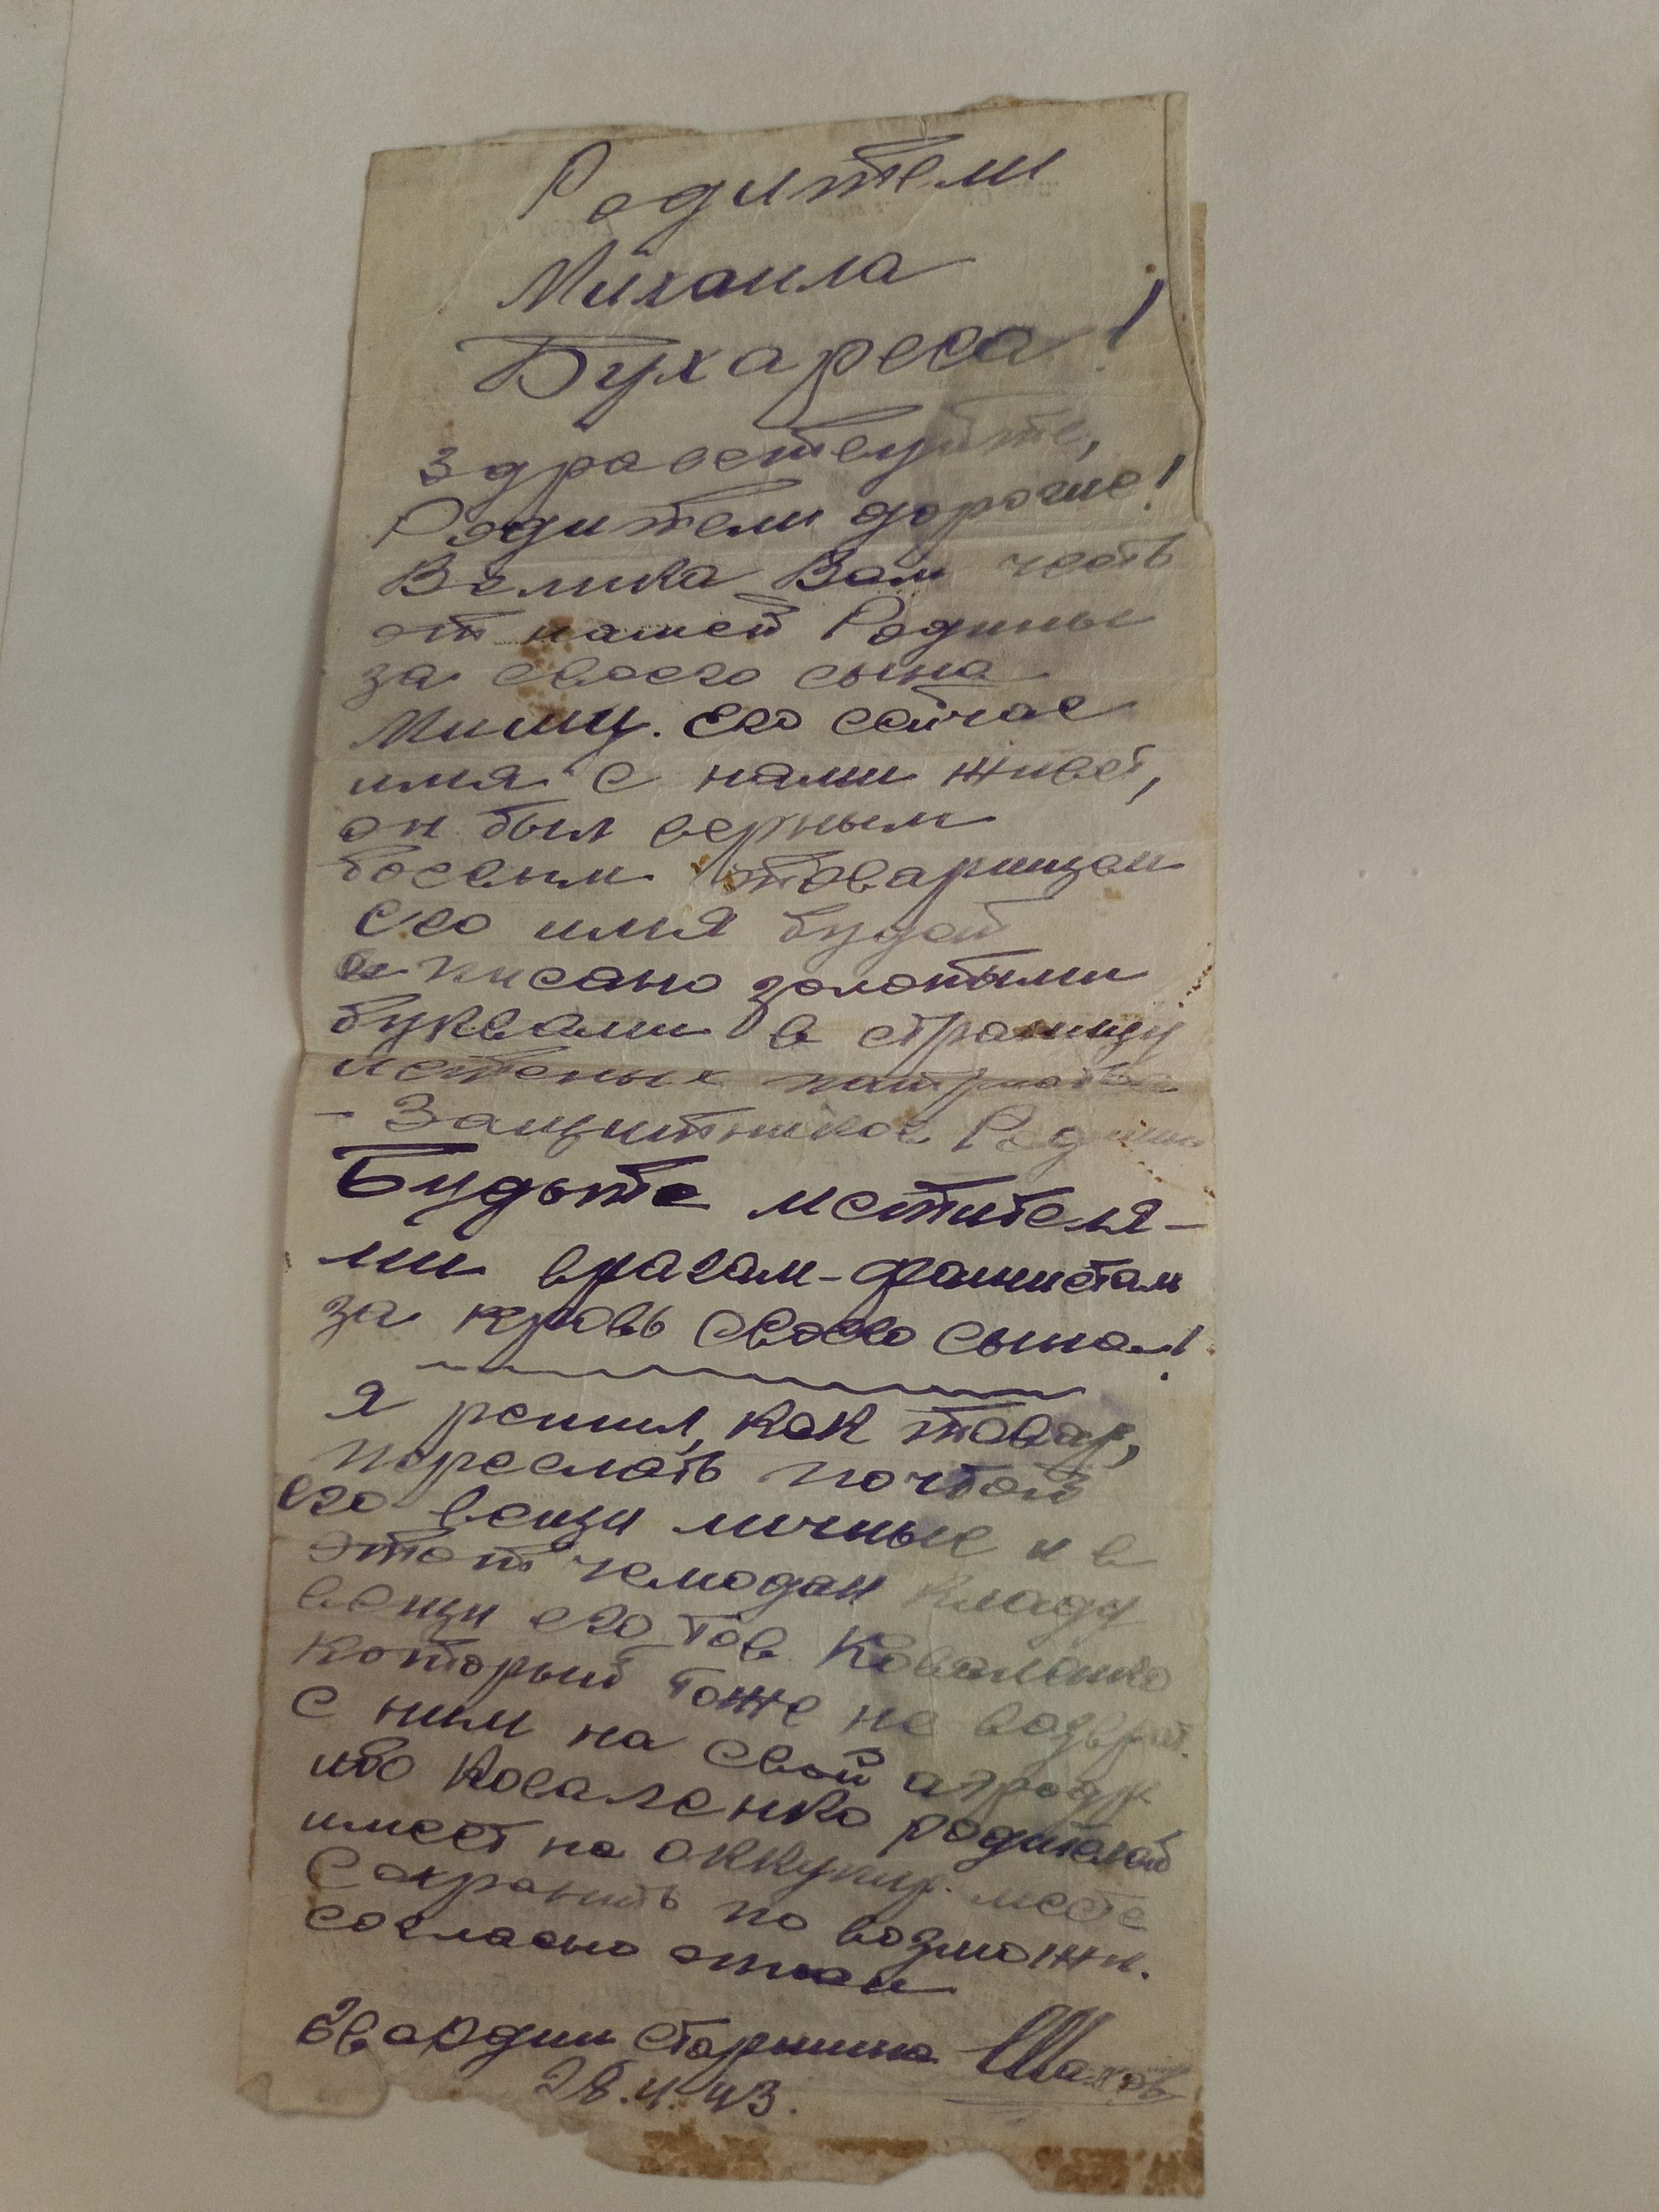 Родители
Михаила
Бухарева!
Здравствуйте,
Родители дорогие!
Велика Вам честь
от нашей Родины
за своего сына
Мишу. Его сейчас
имя с нами живет,
он был верным
боевым товарищем
его имя будет
писано золотыми
буквами в страницу
истеных патриотов
- Защитников Родины
Будьте мстителя-
ми врагам-фашистам
за кровь своего сына!
Я решил, как товар,
переслать почтой
его вещи личные и в
этот чемодан кладу
вещи его тов Коваленко
который тоже не возврат.
с ним на свой аэродр
ибо Коваленко родителей
имеет на оккупир. месте
Сохранить по возможн.
согласно
Гвардии старшина Шахов
28.4.43.